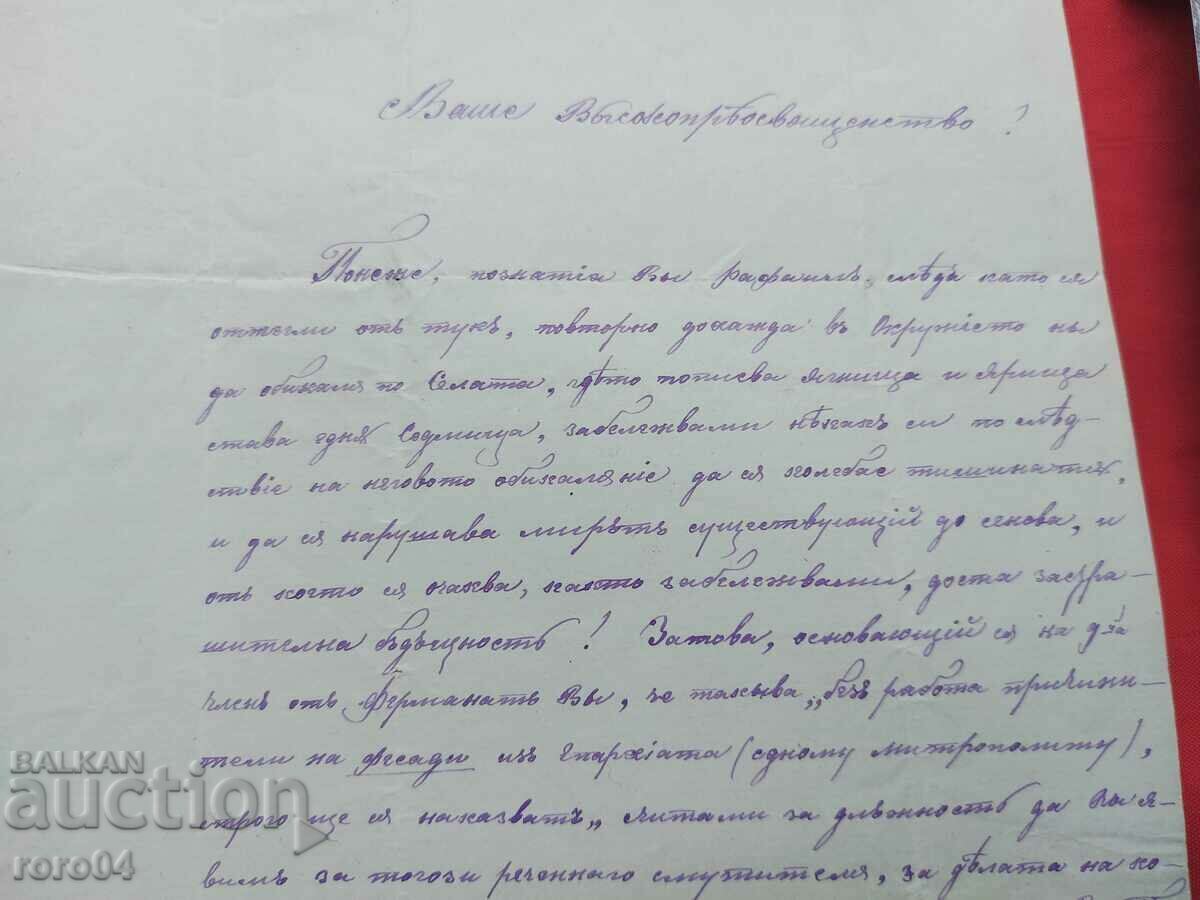 Ваше Высокопрѣосвященство!
Понеже, познатіа Вы рафаилъ, слѣдъ като ся
оттегли отъ тукъ, повторно дохажда въ Окружіето ны
да обикаля по Селата, гдѣто пописва и
става една Седмица, забележвами нѣкакъ си по слѣд-
ствіе на неговото обикаляніе да ся колебае тишинатѫ,
и да ся нарушава мирътъ существующій до сенова, и
отъ което ся очаква, както забележвами, доста застра-
шителна бѫдѫщность! Затова, основающій ся на
членъ отъ Ферманатъ Вы, че такыва „безъ работа причини-
тели на фесади изъ Епархіата (едному митрополиту),
строго ще ся наказватъ„ считами за длъжность да Вы я-
вимъ за тогози реченнаго смутителя, за дѣлата на ко-
BALKAN
auction
roro04